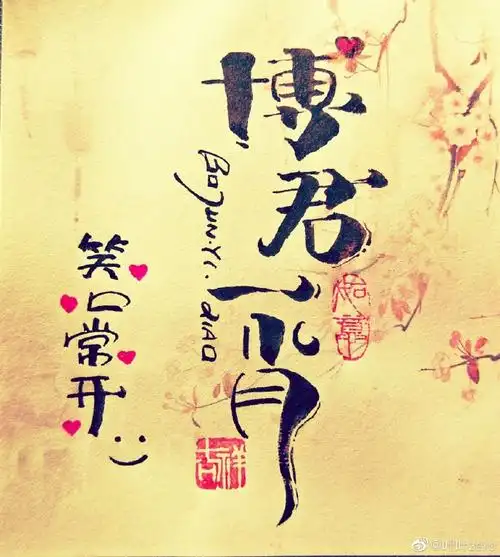 博君一肖
BOJUN.YI.XIAO
如意
吉祥
笑口常开 :)